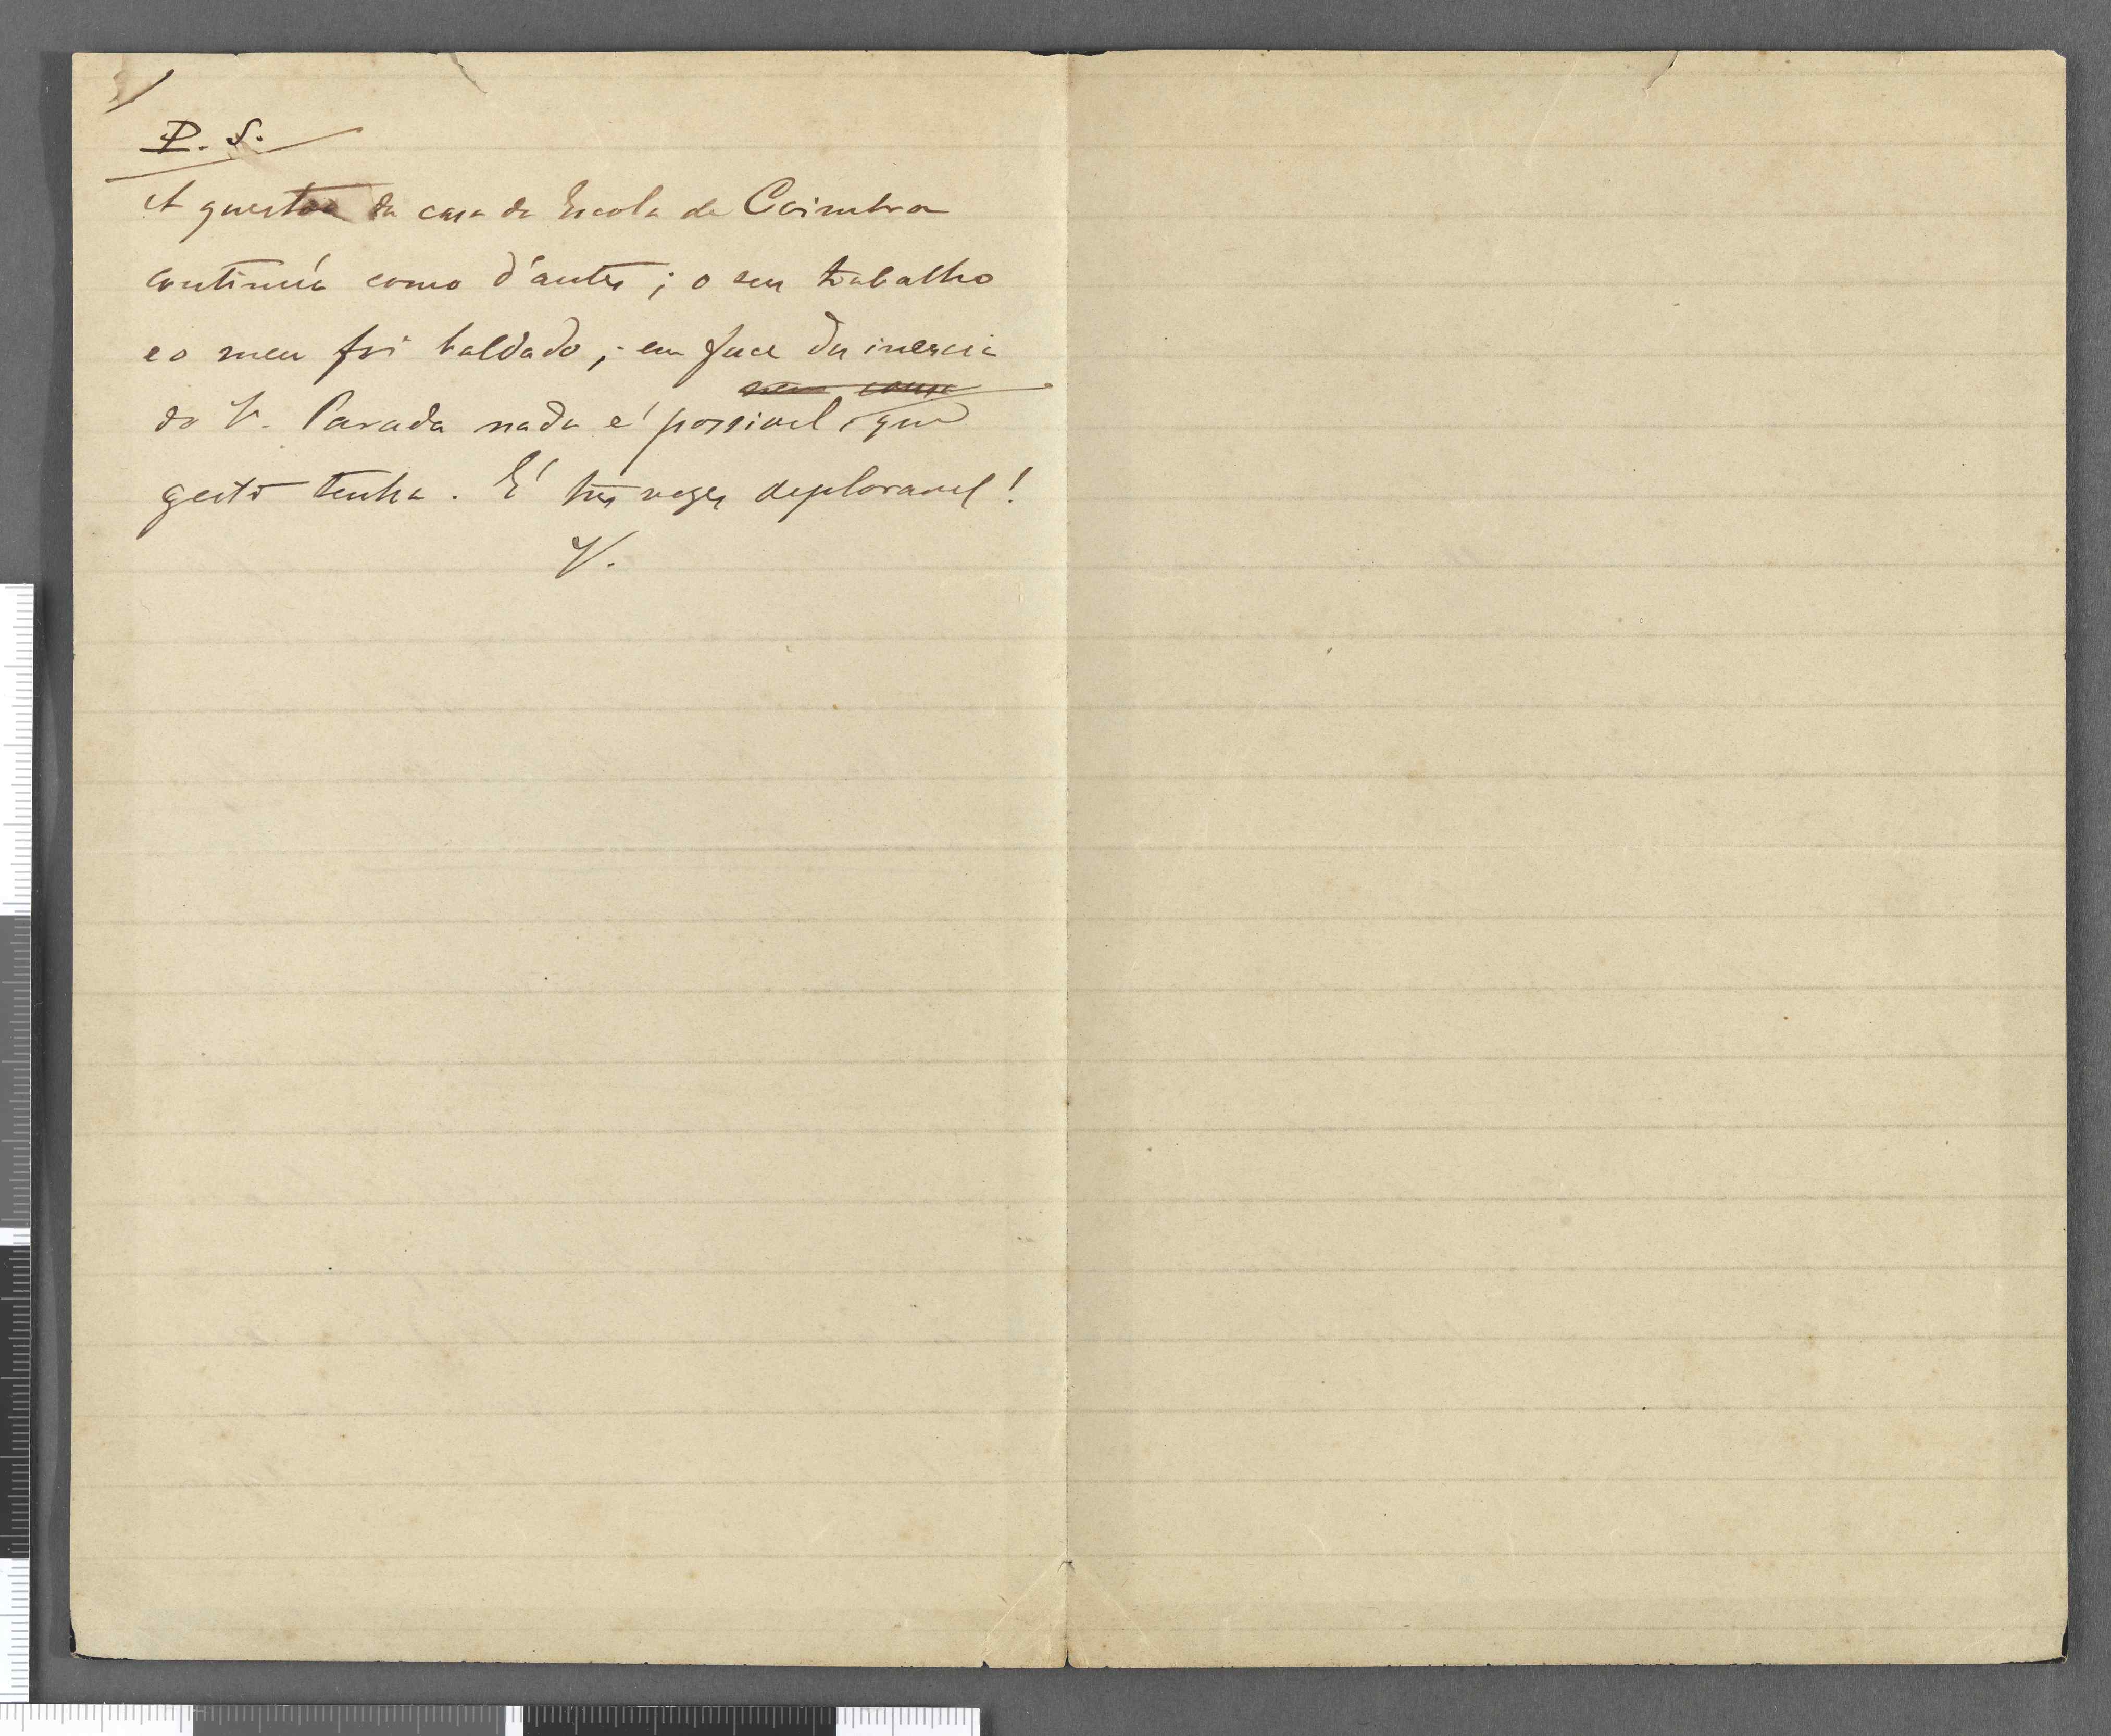 P. S.
A questão da casa da Escola de Coimbra
continúa como d'antes; o seu trabalho
e o meu foi baldado; em face da inercia
do V. Parada nada é possivel, que
geito tenha. É tres vezes deploravel!
V.